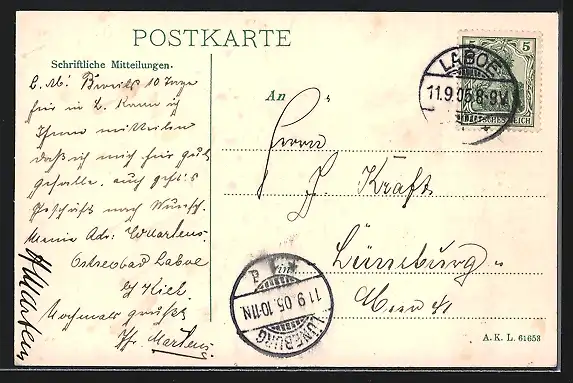 POSTKARTE
Schriftliche Mitteilungen.
L. M! Bereits 10 Tage
hier in L. kann ich
Ihnen mitteilen
daß es mich hier gut
gefällt, auch geht's
Geschäft nach Wunsch.
Meine Adr: W Martens.
Ostseebad Laboe
b/ Kiel
Nochmals grüßt
Ihr Martens.
Martens
An
Herrn
Kräft
Lüneburg
5 5
DEUTSCHES REICH
LABOE
11.9.05 8-9V.
LÜNEBURG
11 9 05. 10-11N.
A. K. L. 61658